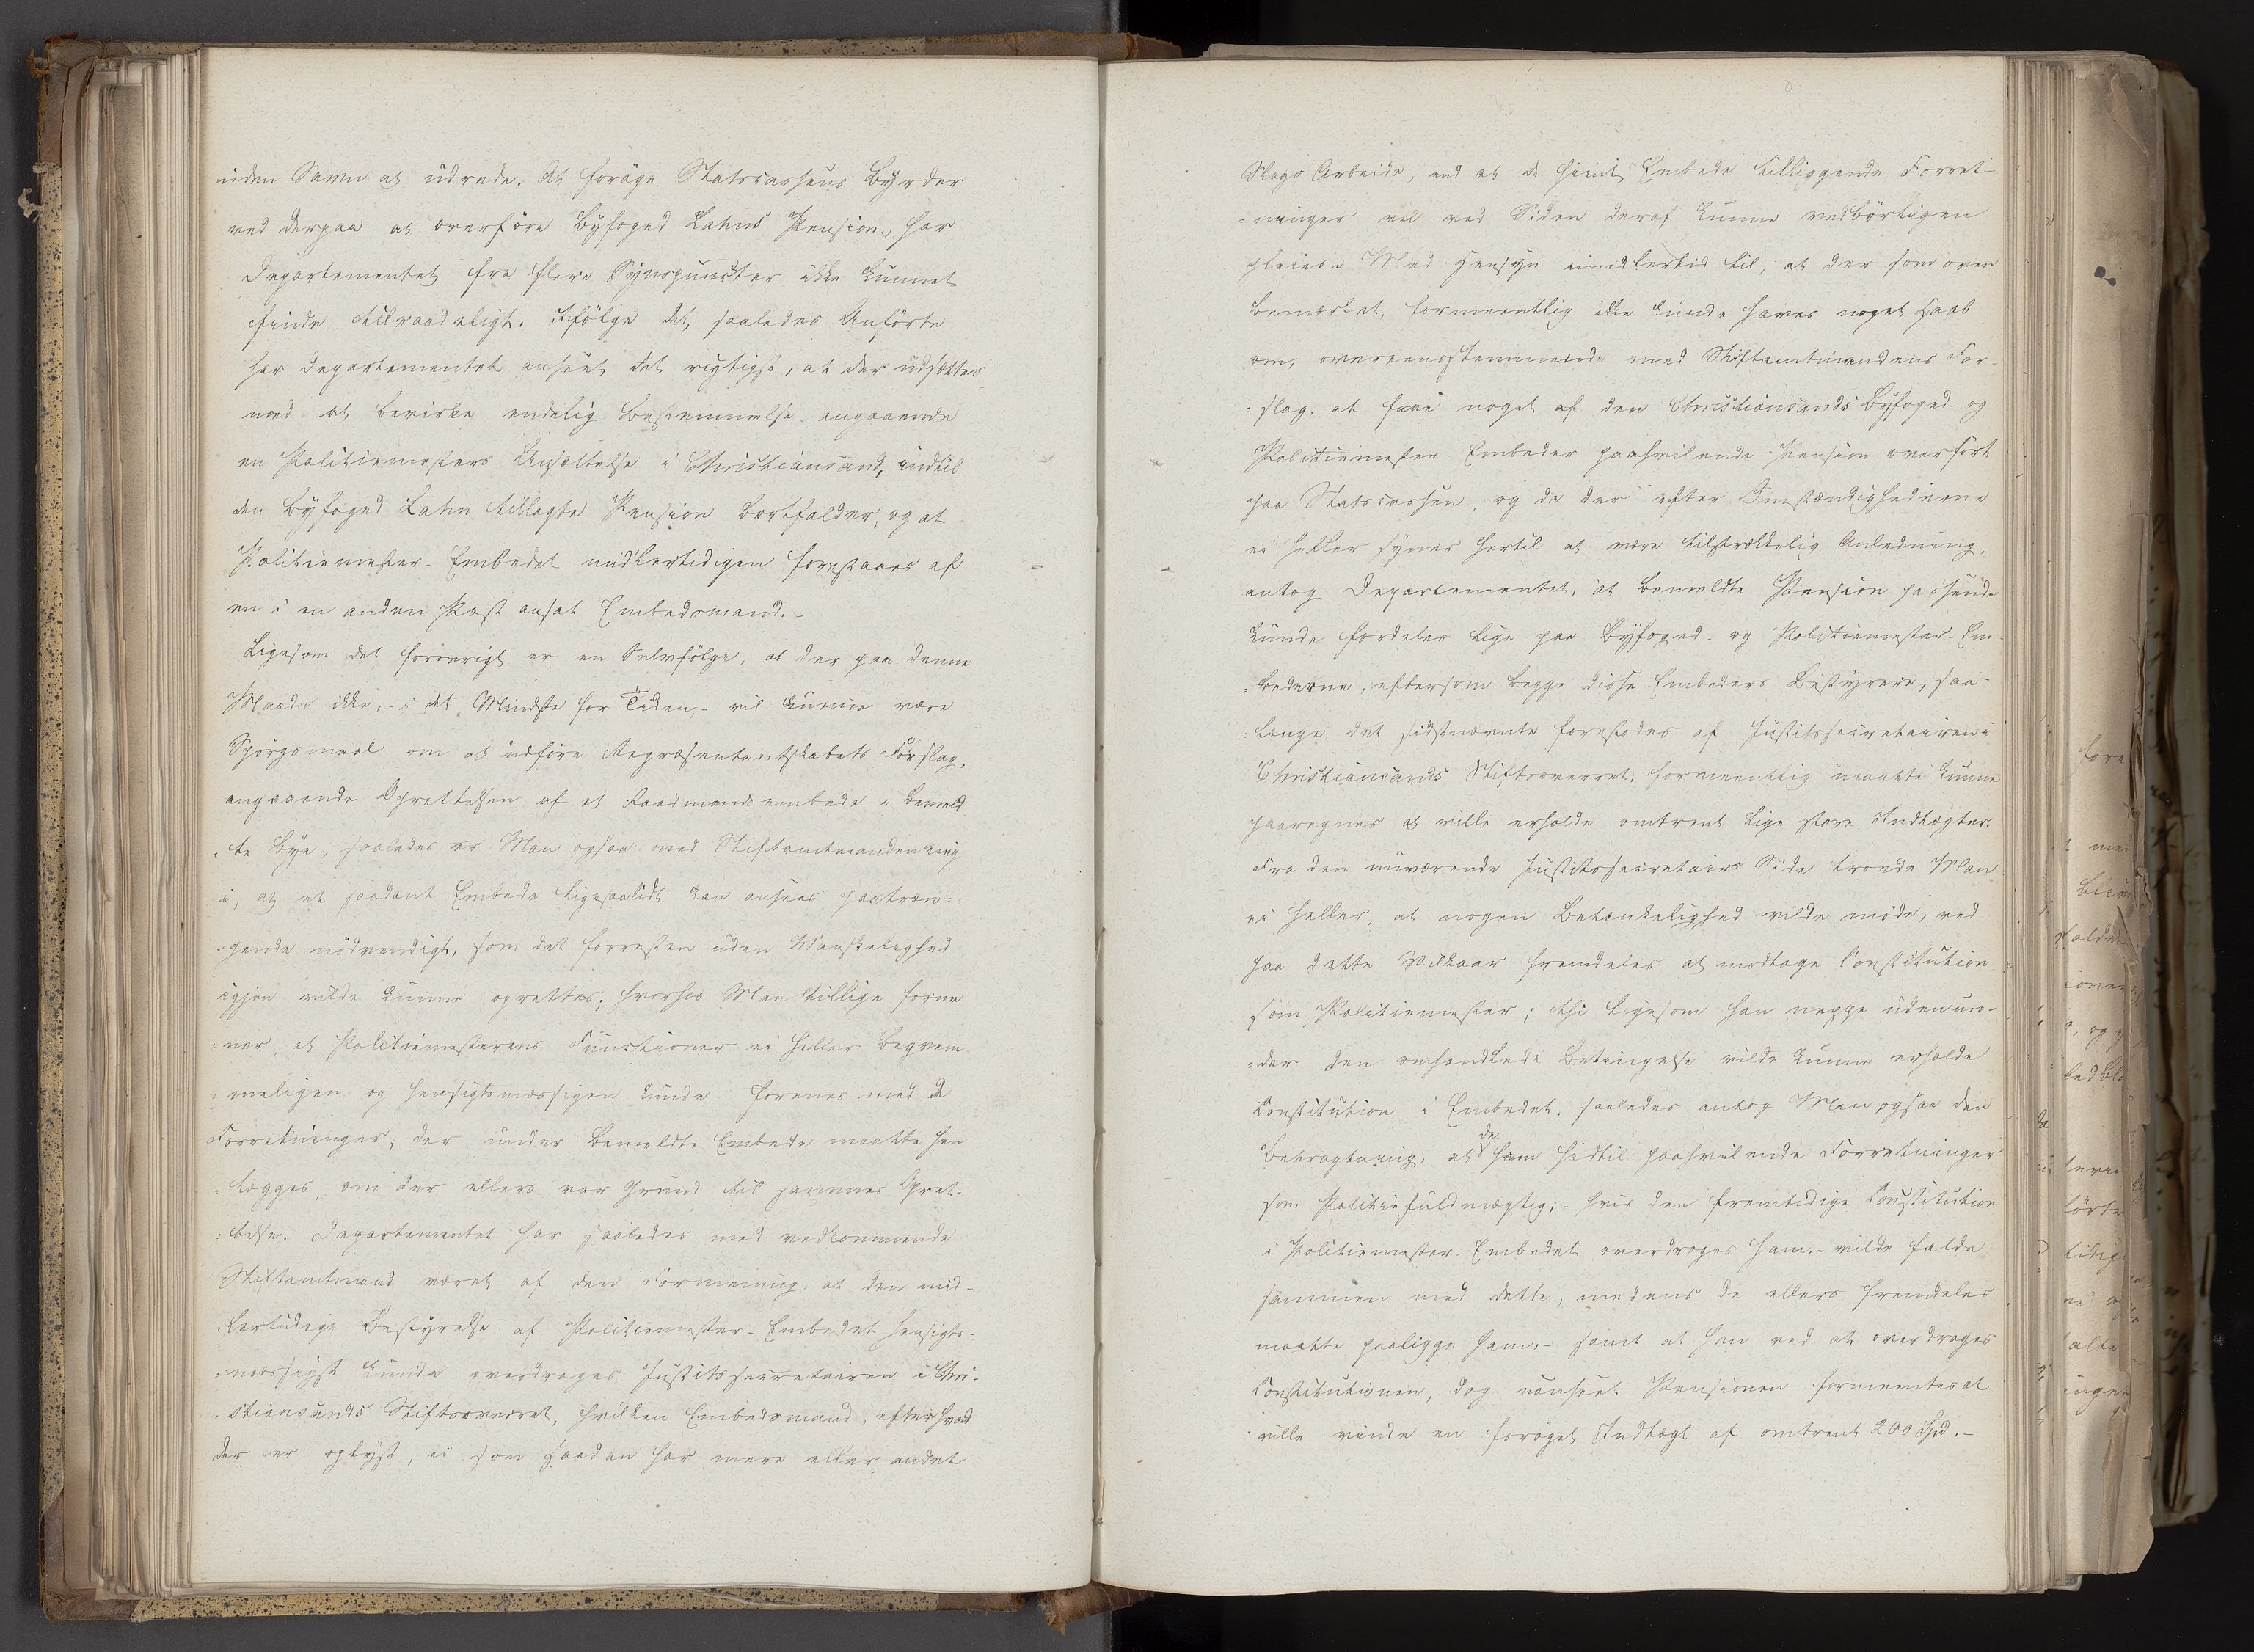 uden Savn at udrede. At foröge Statscassens Byrder
ved derpaa at overföre Byfoged Lahns Pension, har
Departementet fra flere Synspuncter ikke kunnet
finde tilraadeligt. Ifölge det saaledes Anförte
har Departementet anseet det rigtigst, at der udsættes
med at bevirke endelig Bestemmelse angaaende
en Politiemesters Ansættelse i Christiansand, indtil
den Byfoged Lahn tillagte Pension bortfalder, og at
Politiemester-Embedet midlertidigen forestaaes af
en i en anden Post ansat Embedsmand.-
Ligesom det forövrigt er en Selvfölge, at der paa denne
Maade ikke,- i det Mindste for Tiden,- vil kunne være
Spörgsmaal om at udföre Repræsentantskabets Forslag,
angaaende Oprettelsen af et Raadmandsembede i bemeld
te Bye, saaledes er Man ogsaa med Stiftamtmanden enig
i, at et saadant Embede ligesaalidt kan ansees paatræn-
gende nödvendigt, som det forresten uden Vanskelighed
igjen vilde kunne oprettes; hvorhos Man tillige forme
ner, at Politiemesterens Functioner ei heller beqvem
meligen og hensigtsmæssigen kunde forenes med de
Forretninger, der under bemeldte Embede maatte hen
lægges, om der ellers var Grund til sammes Opret-
telse. Departementet har saaledes med vedkommende
Stiftamtmand været af den Formening, at den mid-
lertidige Bestyrelse af Politiemester-Embedet hensigts-
mæssigst kunde overdrages Justitssecretairen i Chri-
stiansands Stiftsoverret, hvilken Embedsmand, efter hvad
der er oplyst, ei som saadan har mere eller andet
Slags Arbeide, end at de hiint Embede tilliggende Forret-
ninger vel ved Siden deraf kunne vedbörligen
pleies. Med Hensyn imidlertid til, at der som oven
bemærket, formeentlig ikke kunde haves noget Haab
om, overeensstemmende med Stiftamtmandens For-
slag, at faae noget af den Christiansands Byfoged- og
Politiemester-Embeder paahvilende Pension overfört
paa Statscassen, og da der efter Omstændighederne
ei heller synes hertil at være tilstrækkelig Anledning,
antog Departementet, at bemeldte Pension passende
kunde fordeles lige paa Byfoged- og Politiemester-Em-
bederne, eftersom begge disse Embeders Bestyrere, saa-
længe det sidstnævnte forestodes af Justitssecretairen i
Christiansands Stiftsoverret, formeentlig maatte kunne
paaregnes at ville erholde omtrent lige store Indtægter.
Fra den nuværende Justitssecretairs Side troede Man
ei heller, at nogen Betænkelighed vilde möde, ved
paa dette Vilkaar fremdeles at modtage Constitution
som Politiemester; thi ligesom han neppe uden un-
der den omhandlede Betingelse vilde kunne erholde
Constitution i Embedet, saaledes antog Man ogsaa den
Betragtning, at de ham hidtil paahvilende Forretninger
som Politiefuldmægtig,- hvis den fremtidige Constitution
i Politiemester-Embedet overdroges ham,- vilde falde
sammen med dette, medens de ellers fremdeles
maatte paaligge ham,- samt at han ved at overdrages
Constitutionen, dog uanseet Pensionen formeentes at
ville vinde en foröget Indtægt af omtrent 200 Spd.-